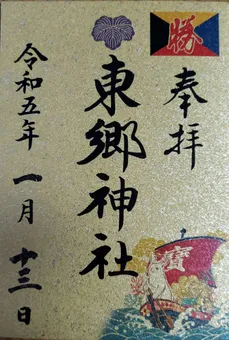 勝
奉拝
東郷神社
令和五年 一月 十三日
寳